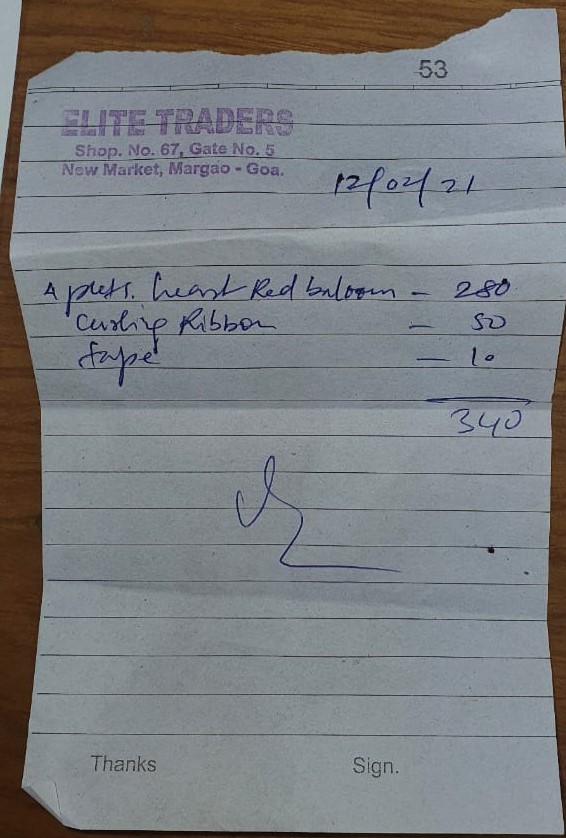 53
ELITE TRADERS
Shop. No. 67, Gate No. 5
New Market, Margao - Goa.
12/02/21
4 pkts. heart Red baloon - 280
Curling Ribbon - 50
tape - 10
340
Thanks Sign.